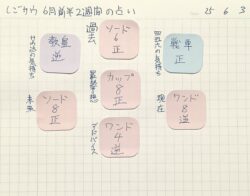 しごと 6月前半2週間の占い 25 6 3
過去
ソード
6
正
教皇
逆
の気持ち
戦車
正
の気持ち
カップ
8
正
ソード
8
正
未来
ワンド
8
逆
現在
ワンド
4
逆
アドバイス